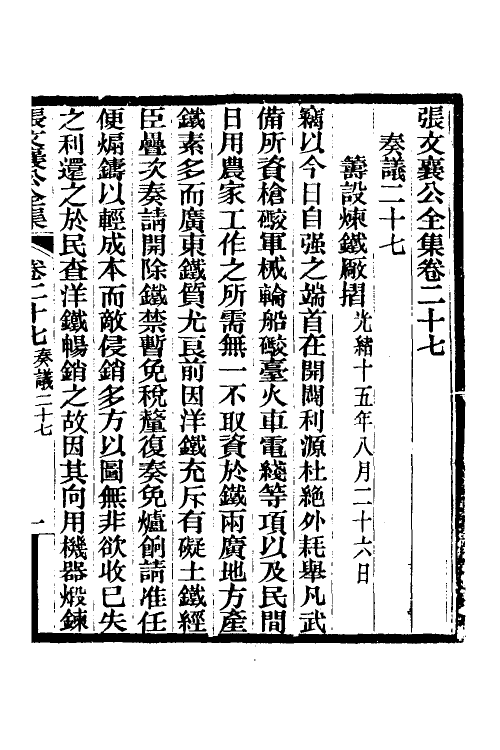 張文襄公全集卷二十七
奏議二十七
籌設煉鐵廠摺光緒十五年八月二十六日
竊以今日自强之端首在開闢利源杜絕外耗舉凡武
備所資槍礮軍械輪船礮臺火車電綫等項以及民間
日用農家工作之所需無一不取資於鐵兩廣地方產
鐵素多而廣東鐵質尤良前因洋鐵充斥有礙土鐵經
臣疊次奏請開除鐵禁暫免稅釐復奏免爐餉請准任
便煽鑄以輕成本而敵侵銷多方以圖無非欲收已失
之利還之於民查洋鐵暢銷之故因其向用機器煅鍊
張文襄公全集 卷二十七 奏議二十七 一